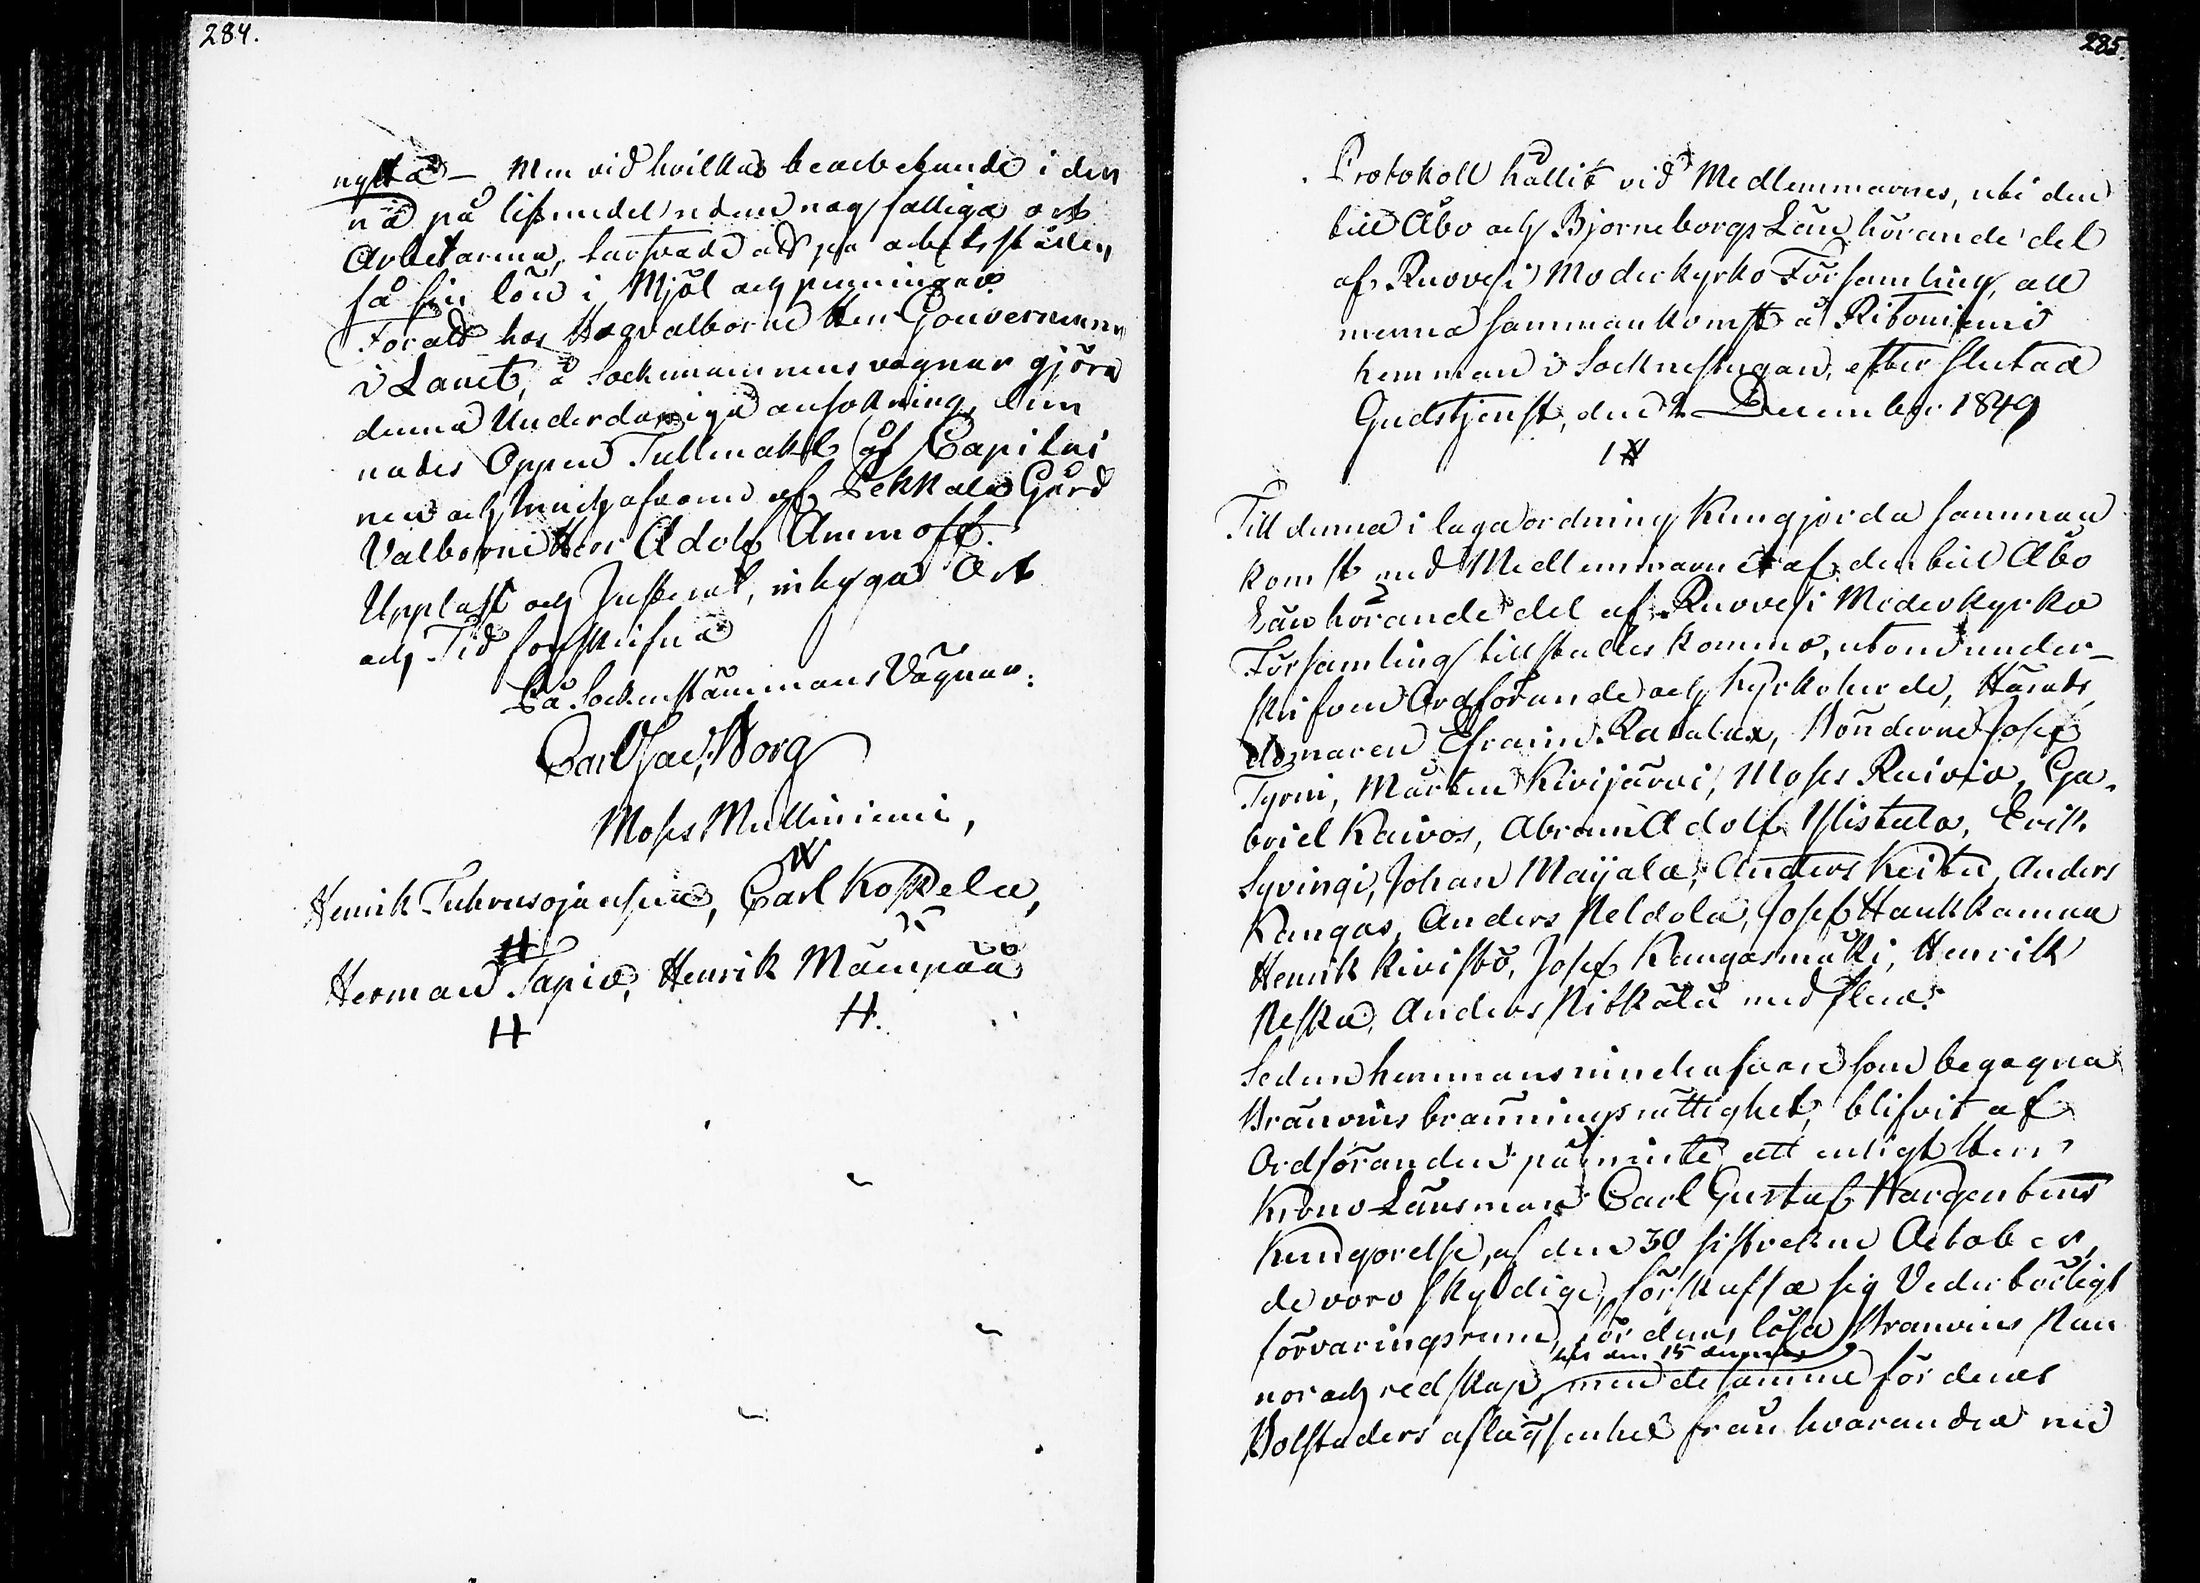 284.
nytta – Men vid hvilkas bearbetande i den
na på lifsmedel uden nog fattiga ort
Arbetarena, turfvade att på arbetsställen
få sin lön i Mjöl och penningar.
För att hos Högvälborne Herr Gouverneuren
i Länet, å Sockenmännens vägnar göra
denna Underdåniga ansökning, lem
nades Oppen Fullmakt åf Capitai
nen och Innehafvaren af Pekkala Gård
Välborne Herr Adolf Aminoff.
Uppläst och Justerat, inbyga Ort
och Tid forskrifna
På Sockenstämmans Vägnar:
Carl Isac Borg
Moses Mulliniemi,
Henrik Tuhrusojansuu, Carl Koskela,
Herman Tapio, Henrik Mäenpää
285.
Protokoll hållit vid Medlemmarnes, uti den
till Åbo och Björneborgs Län hörande del
af Ruovesi Moderkyrko Församling, all
männa sammankomst å Ritoniemi
hemman i Socknestugan, efter slutad
Gudstjenst, den 2 December 1849
1 §
Till denna i laga ordning kungjorda samman
komst med Medlemmarne af den till Åbo
Län hörande del af Ruovesi Moderkyrko
Församling tillstädes kommo, utom under-
skrifven Ordförande och Kyrkoherde, Härads
domaren Efraim Rautalax, Bönderne Josef
Tyrni, Mårten Kivijärvi, Moses Ruivio, Ga-
briel Kaivos, Abram Adolf Ylistalo, Erik
Syvingi, Johan Maijala, Anders Keitu, Anders
Kangas, Anders Peldola, Josef Haukkamaa
Henrik Kivistö, Josef Kangasmäki, Henrik
Peska, Anders Pitkälä med flera.
Sedan hemmansinnehafvare som begagna
Bränvins bränningsrättighet, blifvit af
Ordföranden påminte att enligt Herr
Krono Länsman Carl Gustaf Hargentins
Kungörelse, af den 30 sistvekne October,
de voro skyldige, förskaffa sig Vederbörligt
förvaringsrum, för deras lösa Bränvins Pan
till den 15 dennes
nor och redskap, men desamme för deras
Bolstaders aflägsenhet från hvarandra med